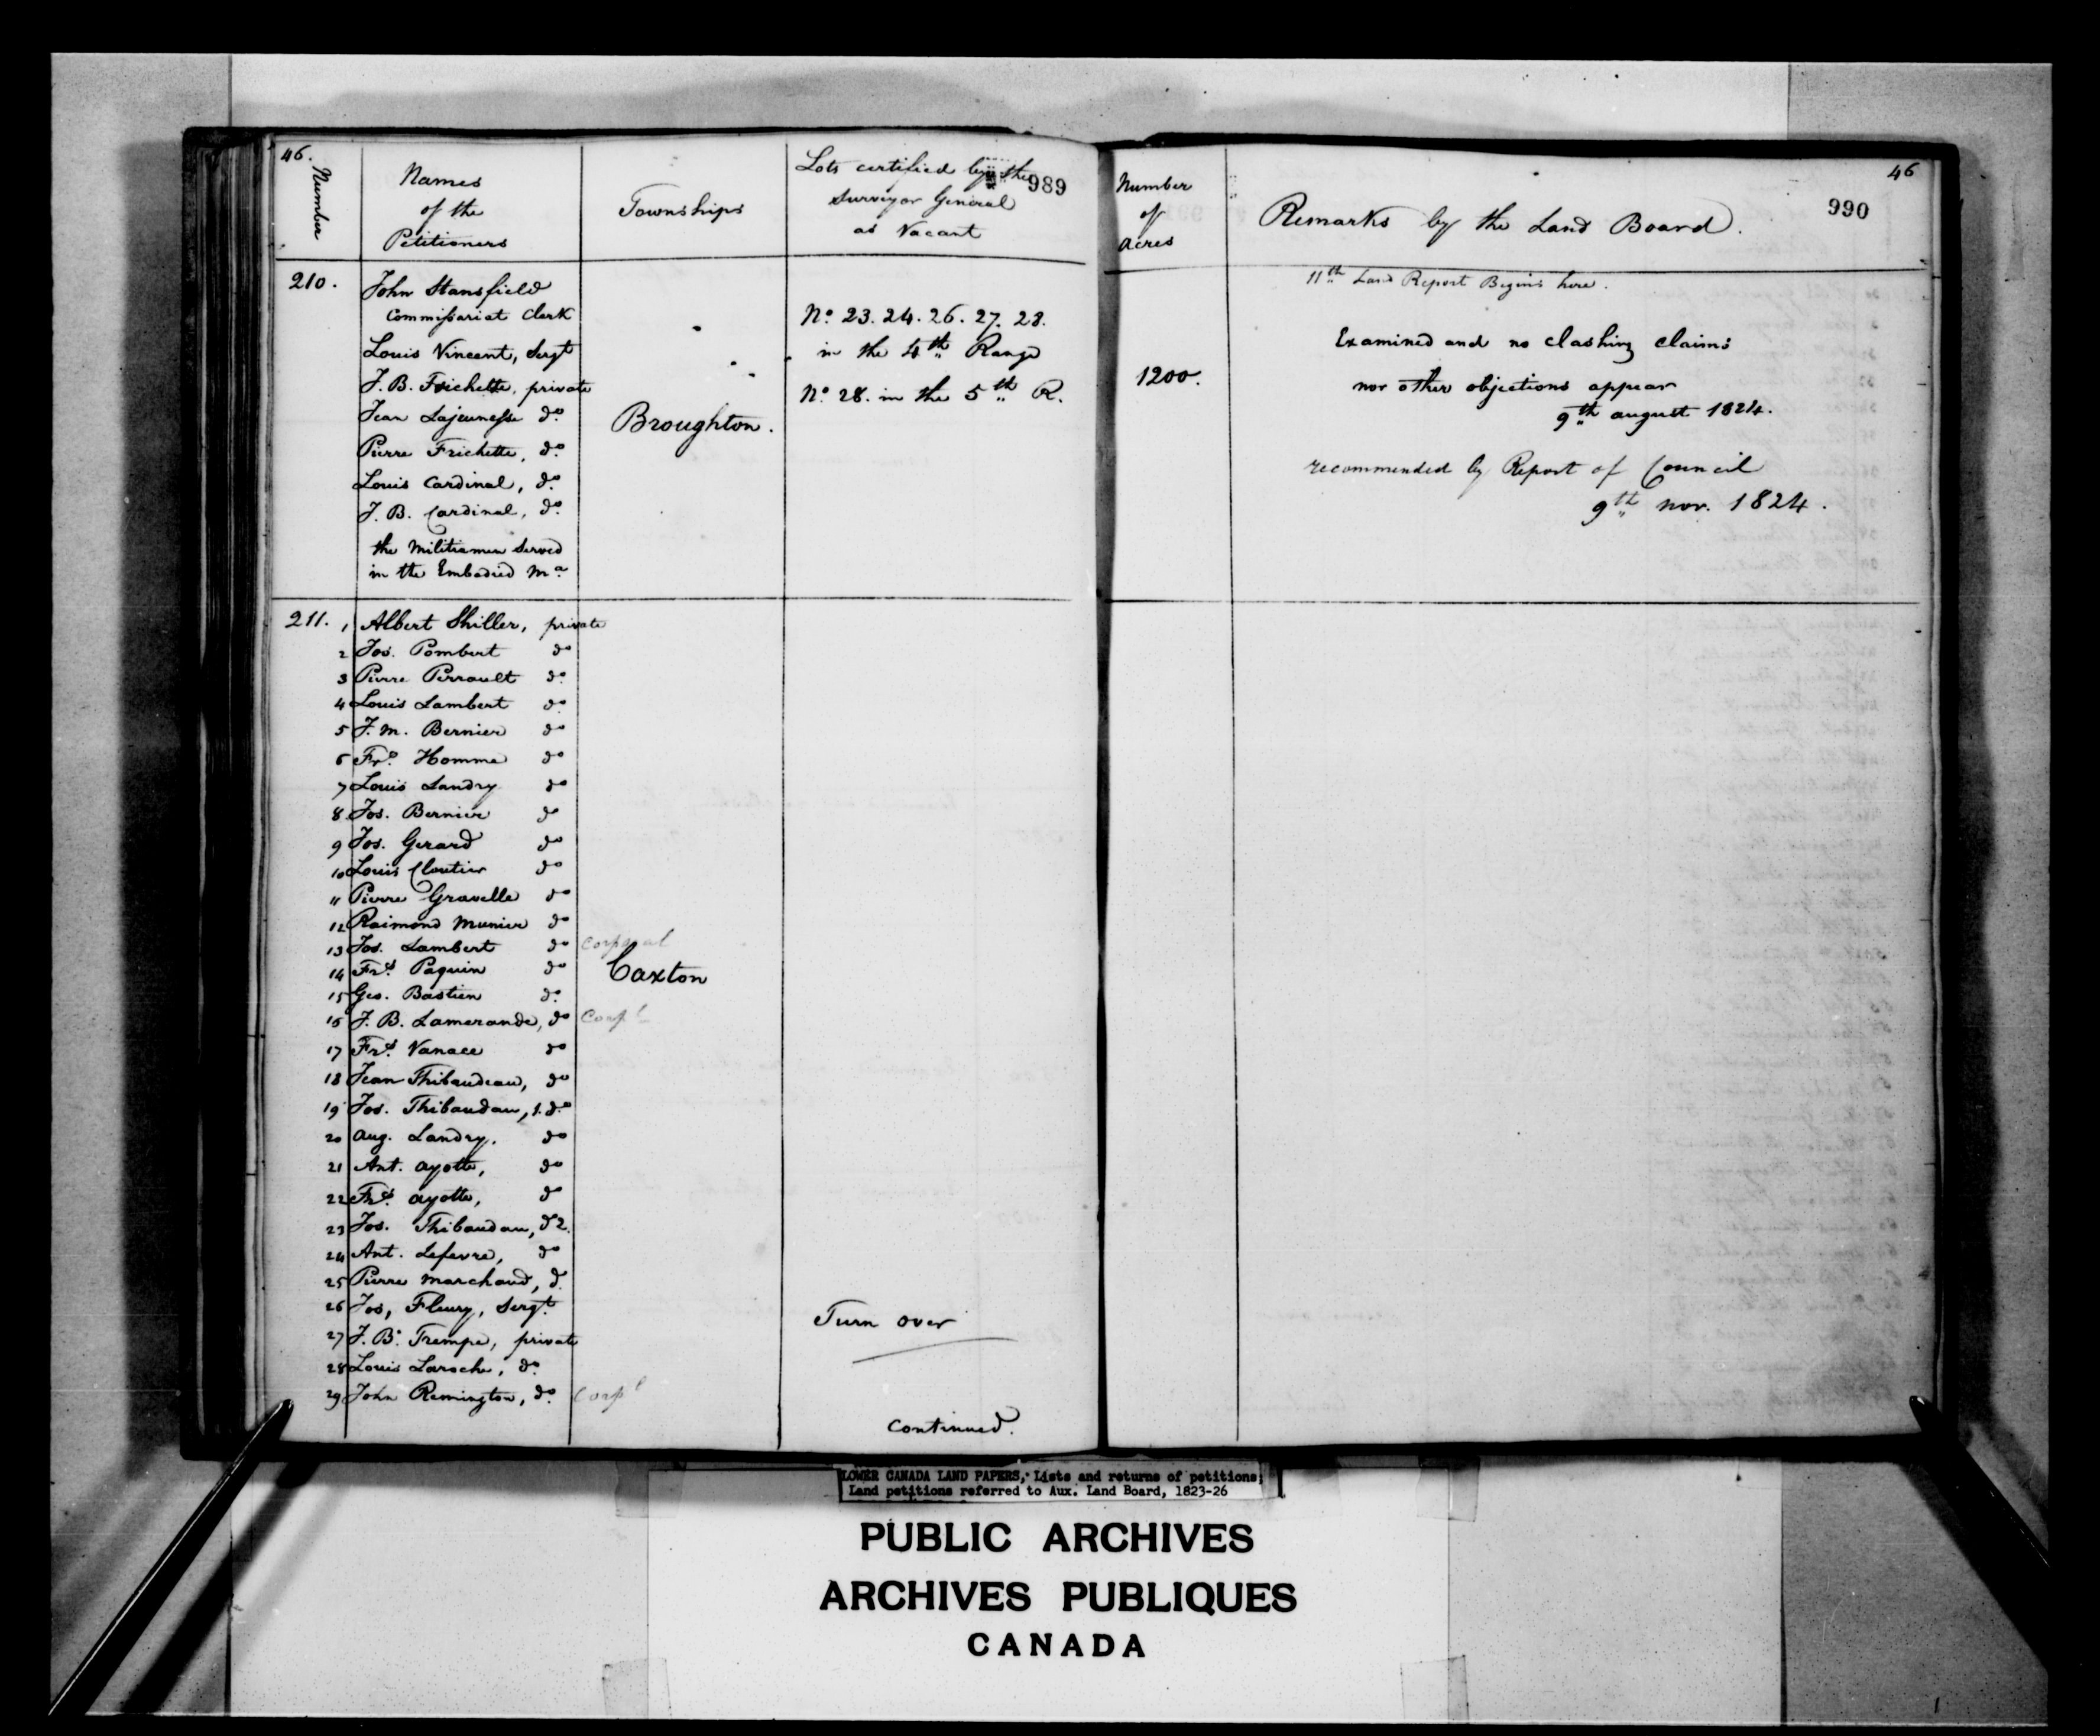 46.
Number
Names
of the
Petitioners
Townships
Lots certified by the
Surveyor General
as Vacant
989
210.
John Stansfield
Commissariat Clerk
Louis Vincent, Sergt
J. B. Frichette, private
Jean Lajeunesse do.
Pierre Frichette, do.
Louis Cardinal, do.
J. B. Cardinal, do.
the Militiamen Served
in the Embodied Ma.
Broughton.
No. 23. 24. 26. 27. 28.
in the 4th Range
No. 28. in the 5th R.
211.
1 Albert Shiller, private
2 Jos. Pombert do
3 Pierre Perrault do.
4 Louis Lambert do.
5 J. M. Bernier do
6 Frs. Homme do
7 Louis Landry do
8 Jos. Bernier do
9 Jos. Gerard do
10 Louis Cloutier do
11 Pierre Gravelle do
12 Raimond Munier do
13 Jos. Lambert do Corporal
14 Frs. Paquin do
15 Geo. Bastien do.
16 J. B. Lamerande, do Corpl
17 Frs. Vanace do
18 Jean Thibaudeau, do
19 Jos. Thibaudau, 1. do
20 Aug. Landry, do
21 Ant. Ayotte, do
22 Frs. Ayotte, do
23 Jos. Thibaudau, d 2.
24 Ant. Lefevre, do
25 Pierre Marchand, d.
26 Jos, Fleury, Sergt.
27 J. B. Trempe, private
28 Louis Laroche, do.
29 John Remington, do. Corpl
Caxton
Turn over
Continued.
Number
of
Acres
Remarks by the Land Board.
46
990
11th Land Report Begins here.
1200.
Examined and no clashing claims
nor other objections appear
9th august 1824.
recommended by Report of Council
9th nov. 1824.
LOWER CANADA LAND PAPERS, Lists and returns of petitions;
Land petitions referred to Aux. Land Board, 1823-26
PUBLIC ARCHIVES
ARCHIVES PUBLIQUES
CANADA